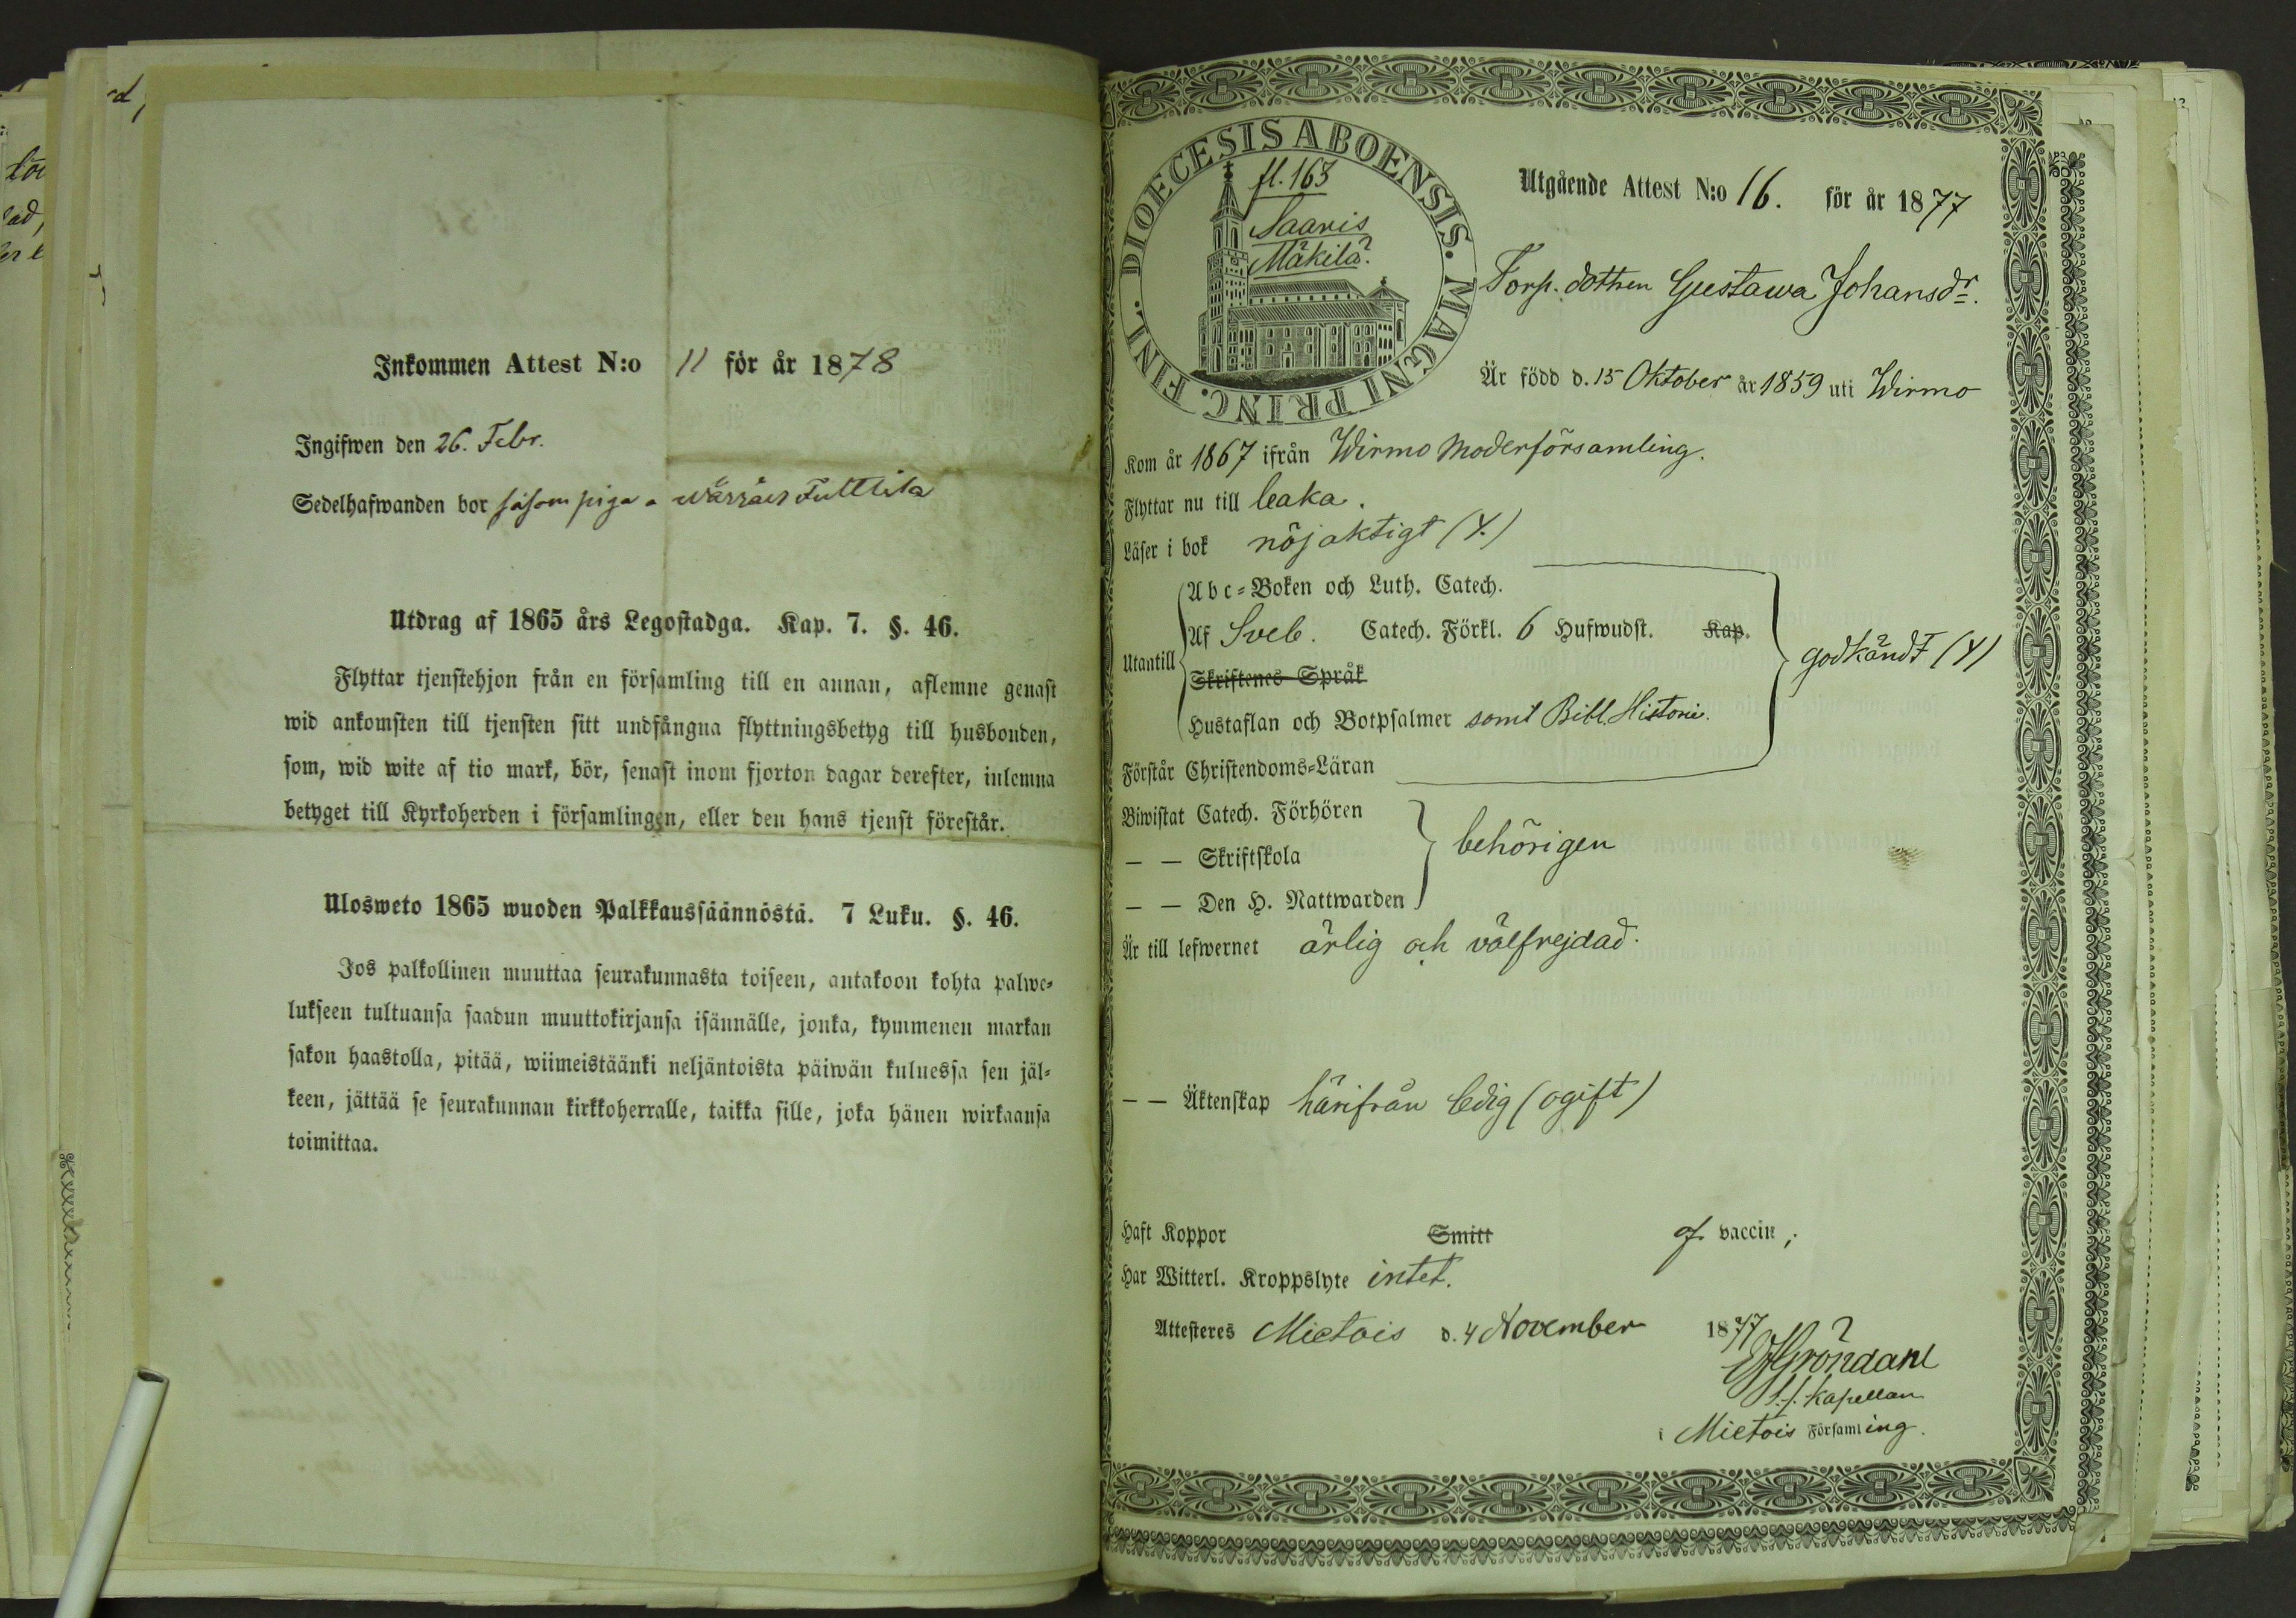 Inkommen Attest N:o 11 för år 1878
Ingifwen den 26. Febr.
Sedelhafwanden bor såsom piga
Utdrag af 1865 års Legostadga. Kap. 7. §. 46.
Flyttar tjenstehjon från en församling till en annan, aflemne genast
wid ankomsten till tjensten sitt undfångna flyttningsbetyg till husbonden,
som, wid wite af tio mark, bör, senast inom fjorton dagar derefter, inlemna
betyget till Kyrkoherden i församlingen, eller den hans tjenst förestår.
Ulosweto 1865 wuoden Palkkaussäännöstä. 7 Luku. §. 46.
Jos palkollinen muuttaa seurakunnasta toiseen, antakoon kohta palwe-
lukseen tultuansa saadun muuttokirjansa isännälle, jonka, kymmenen markan
sakon haastolla, pitää, wiimeistäänki neljäntoista päiwän kuluessa sen jäl-
keen, jättää se seurakunnan kirkkoherralle, taikka sille, joka hänen wirkaansa
toimittaa.
DIOECESIS ABOENSIS. MAGNI PRINC. FINL.
fl. 163
Saaris
Mäkilä.
Utgående Attest N:o 16. för år 1877
Torp. dottren Gustawa Johansdr.
Är född d. 15 Oktober år 1859 uti Wirmo
Kom år 1867 ifrån Wirmo Moderförsamling.
Flyttar nu till
Läser i bok nöjaktigt (Y.)
Utantill
Abc-Boken och Luth. Catech.
Af Sveb. Catech. Förkl. 6 Hufwudst. Kap.
Skriftenes Språk
Hustaflan och Botpsalmer samt Bibl. Historie.
godkändt (Y)
Förstår Christendoms-Läran
Biwistat Catech. Förhören
— — Skriftskola
— — Den H. Nattwarden
behörigen
Är till lefwernet ärlig och välfrejdad.
— — Äktenskap härifrån ledig (ogift)
Haft Koppor Smitt af vaccin,
Har Witterl. Kroppslyte intet.
Attesteres Mietois d. 4 November 1877
Gröndahl
kapellan
i Mietois Församling.